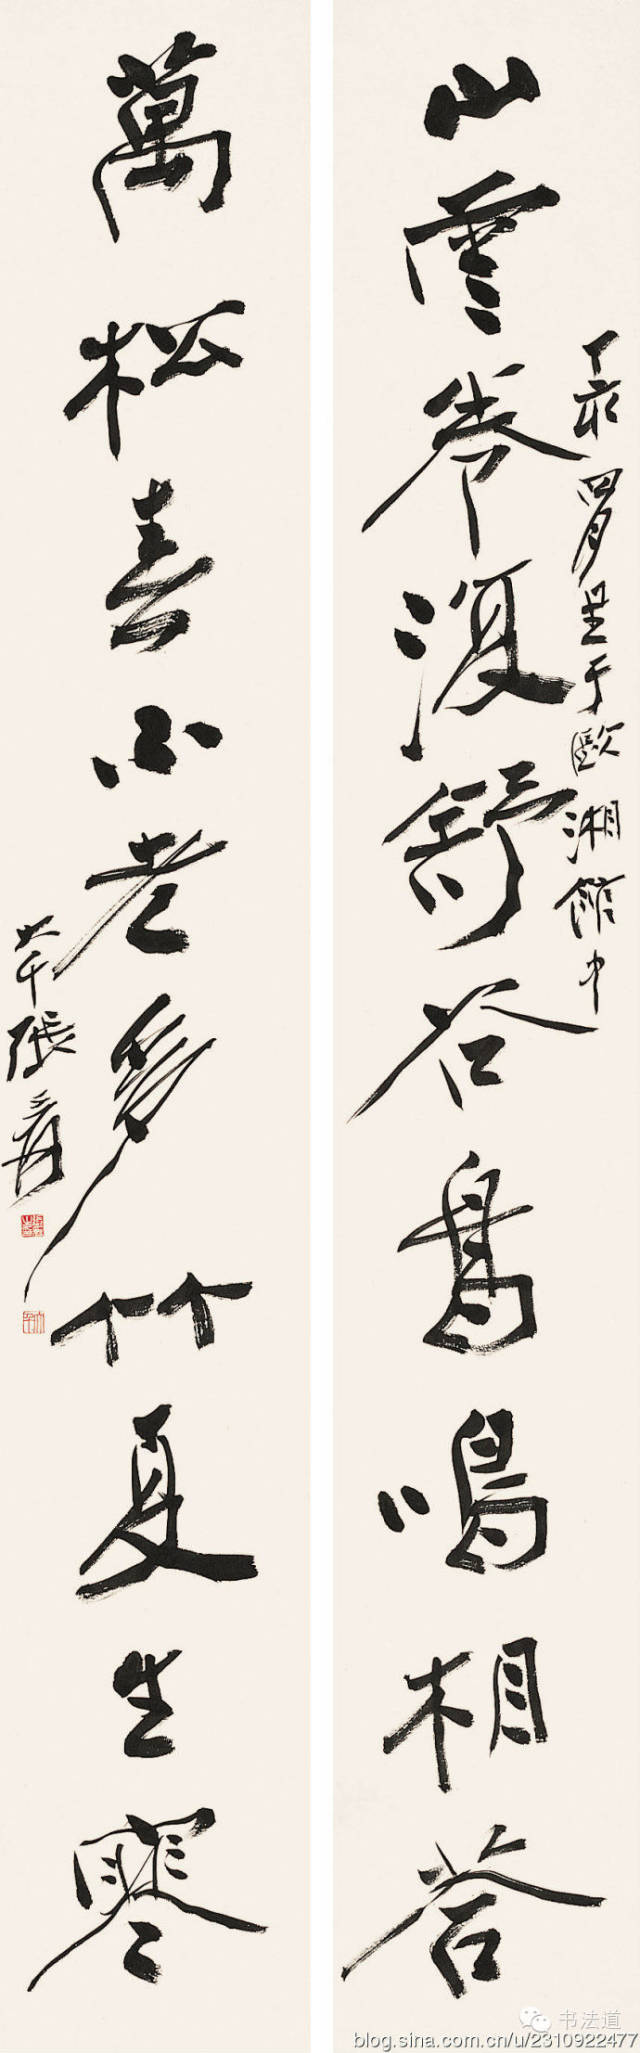 山雲卷復舒谷鳥鳴相答
丁亥四月于歐湘館中
萬松春不老多竹夏生寒
大千張爰
书法道
blog.sina.com.cn/u/2310922477